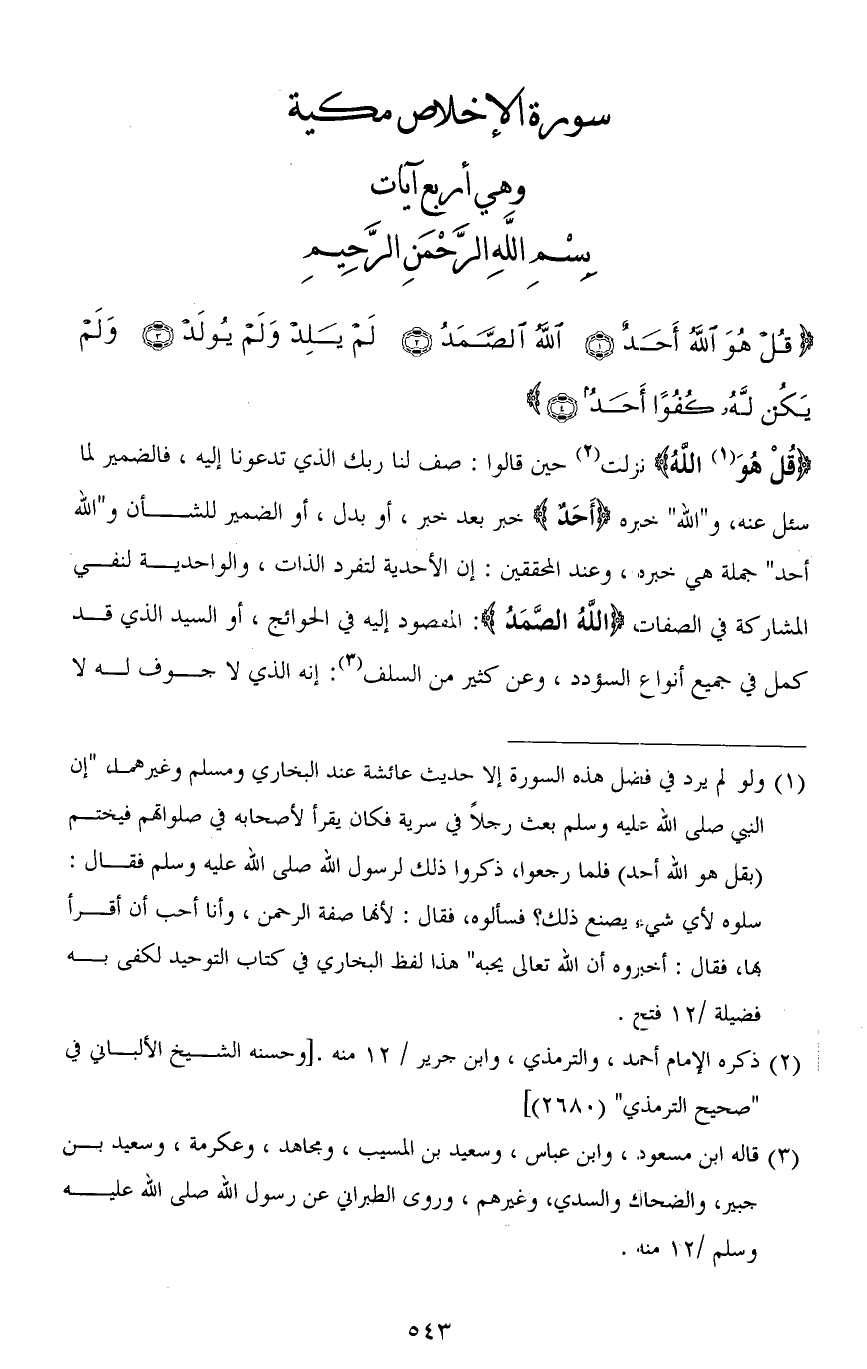 سورة الإخلاص مكية
وهي أربع آيات
بِسْمِ اللَّهِ الرَّحْمَنِ الرَّحِيمِ
﴿قُلْ هُوَ ٱللَّهُ أَحَدٌ ۝١ ٱللَّهُ ٱلصَّمَدُ ۝٢ لَمْ يَلِدْ وَلَمْ يُولَدْ ۝٣ وَلَمْ
يَكُن لَّهُۥ كُفُوًا أَحَدٌۢ ۝٤﴾
﴿قُلْ هُوَ(١) اللَّهُ﴾ نزلت(٢) حين قالوا : صف لنا ربك الذي تدعونا إليه ، فالضمير لما
سئل عنه، و"الله" خبره ﴿أَحَدٌ﴾ خبر بعد خبر ، أو بدل ، أو الضمير للشأن و"الله
أحد" جملة هي خبره ، وعند المحققين : إن الأحدية لتفرد الذات ، والواحدية لنفي
المشاركة في الصفات ﴿اللَّهُ الصَّمَدُ﴾: المقصود إليه في الحوائج ، أو السيد الذي قد
كمل في جميع أنواع السؤدد ، وعن كثير من السلف(٣): إنه الذي لا جوف له لا
(١) ولو لم يرد في فضل هذه السورة إلا حديث عائشة عند البخاري ومسلم وغيرهما، "إن
النبي صلى الله عليه وسلم بعث رجلاً في سرية فكان يقرأ لأصحابه في صلواتهم فيختم
(بقل هو الله أحد) فلما رجعوا، ذكروا ذلك لرسول الله صلى الله عليه وسلم فقال :
سلوه لأي شيء يصنع ذلك؟ فسألوه، فقال : لأنها صفة الرحمن ، وأنا أحب أن أقرأ
بها، فقال : أخبروه أن الله تعالى يحبه" هذا لفظ البخاري في كتاب التوحيد لكفى به
فضيلة /١٢ فتح .
(٢) ذكره الإمام أحمد ، والترمذي ، وابن جرير / ١٢ منه .[وحسنه الشيخ الألباني في
"صحيح الترمذي" (٢٦٨٠)]
(٣) قاله ابن مسعود ، وابن عباس ، وسعيد بن المسيب ، ومجاهد ، وعكرمة ، وسعيد بن
جبير، والضحاك والسدي، وغيرهم ، وروى الطبراني عن رسول الله صلى الله عليه
وسلم /١٢ منه .
٥٤٣